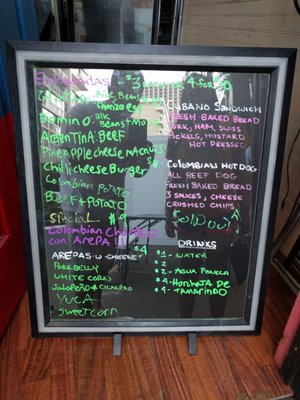 Empanadas - $3 4 for $10
Rice Beans
Chorizo Egg
Domino: Blk
Beans + Mozz
Argentina: Beef
Pineapple cheese
Chili cheese Burger
Colombian Potato
Beef + Potato
Special $9
Colombian Chorizo
con Arepa
$4
Arepas w cheese
Porkbelly
White corn
Jalapeño + Cilantro
Yuca
Sweet corn
Cubano Sandwich
Fresh Baked Bread
Pork, Ham, Swiss
Pickels, Mustard
Hot Pressed
Colombian Hot Dog
$8
All Beef Dog
Fresh Baked Bread
3 Sauces, Cheese
Crushed Chips,
Sold out
Drinks
$1 - Water
$2
$2 - Agua Panela
$4 - Horchata de
$4 - Tamarindo